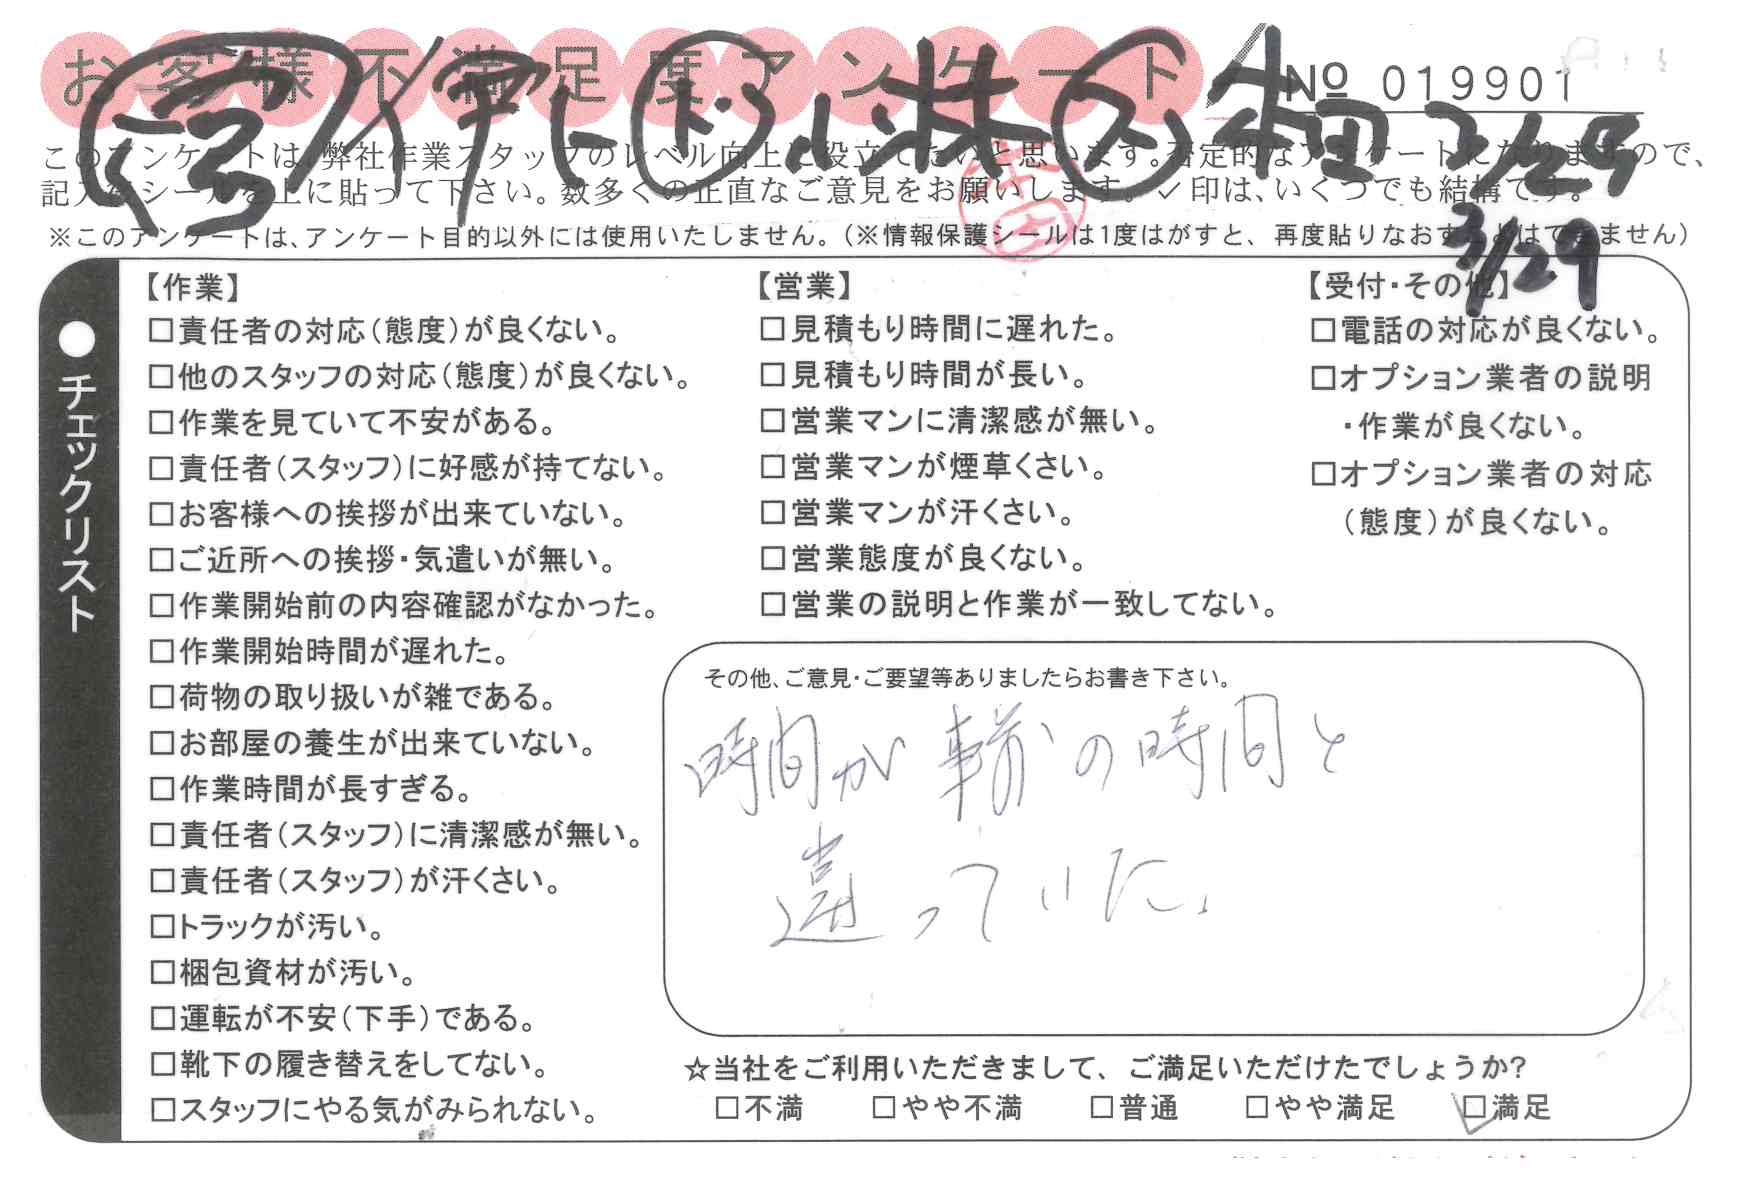 お客様不満足度アンケート
№ 019901
2/29
3/29
このアンケートは、弊社作業スタッフのレベル向上に役立てたいと思います。否定的なアンケートになりますので、
記入後シールを上に貼って下さい。数多くの正直なご意見をお願いします。✓印は、いくつでも結構です。
※このアンケートは、アンケート目的以外には使用いたしません。(※情報保護シールは1度はがすと、再度貼りなおすことはできません)
●チェックリスト
【作業】
□責任者の対応(態度)が良くない。
□他のスタッフの対応(態度)が良くない。
□作業を見ていて不安がある。
□責任者(スタッフ)に好感が持てない。
□お客様への挨拶が出来ていない。
□ご近所への挨拶・気遣いが無い。
□作業開始前の内容確認がなかった。
□作業開始時間が遅れた。
□荷物の取り扱いが雑である。
□お部屋の養生が出来ていない。
□作業時間が長すぎる。
□責任者(スタッフ)に清潔感が無い。
□責任者(スタッフ)が汗くさい。
□トラックが汚い。
□梱包資材が汚い。
□運転が不安(下手)である。
□靴下の履き替えをしてない。
□スタッフにやる気がみられない。
【営業】
□見積もり時間に遅れた。
□見積もり時間が長い。
□営業マンに清潔感が無い。
□営業マンが煙草くさい。
□営業マンが汗くさい。
□営業態度が良くない。
□営業の説明と作業が一致してない。
【受付・その他】
□電話の対応が良くない。
□オプション業者の説明
・作業が良くない。
□オプション業者の対応
(態度)が良くない。
その他、ご意見・ご要望等ありましたらお書き下さい。
時間が事前の時間と
違っていた。
☆当社をご利用いただきまして、ご満足いただけたでしょうか?
□不満 □やや不満 □普通 □やや満足 ☑満足